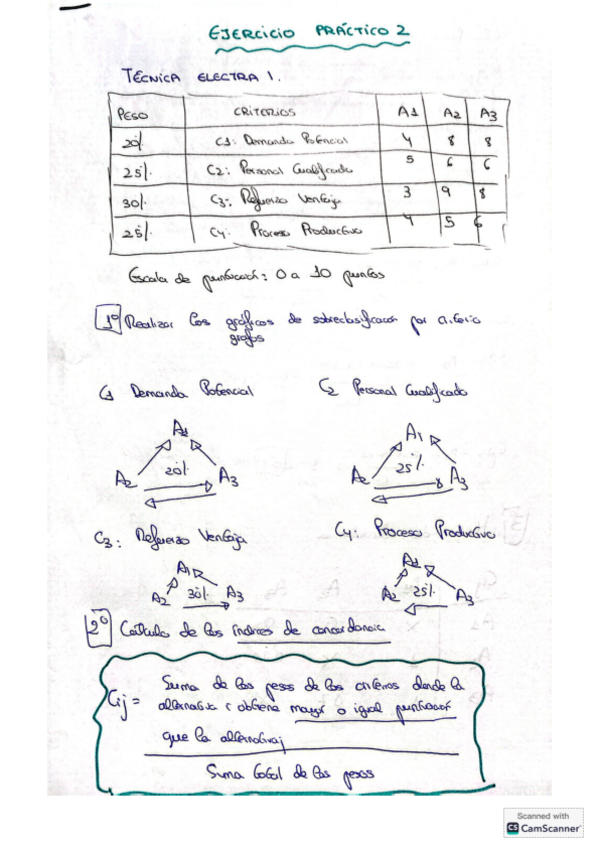 EJERCICIO PRÁCTICO 2
TÉCNICA ELECTRA 1.
PESO CRITERIOS A1 A2 A3
20% C1: Demanda Potencial 4 8 8
25% C2: Personal Cualificado 5 6 6
30% C3: Refuerzo Ventaja 3 9 8
25% C4: Proceso Productivo 4 5 6
Escala de puntuación: 0 a 10 puntos
1º Realizar los gráficos de sobreclasificación por criterio
grafos
C1 Demanda Potencial C2 Personal Cualificado
A1 A1
20% 25%
A2 A3 A2 A3
C3: Refuerzo Ventaja C4: Proceso Productivo
A1 A1
A2 30% A3 A2 25% A3
2º Cálculo de los índices de concordancia
Cij =
Suma de los pesos de los criterios donde la
alternativa i obtiene mayor o igual puntuación
que la alternativa j
Suma total de los pesos
Scanned with
CS CamScanner